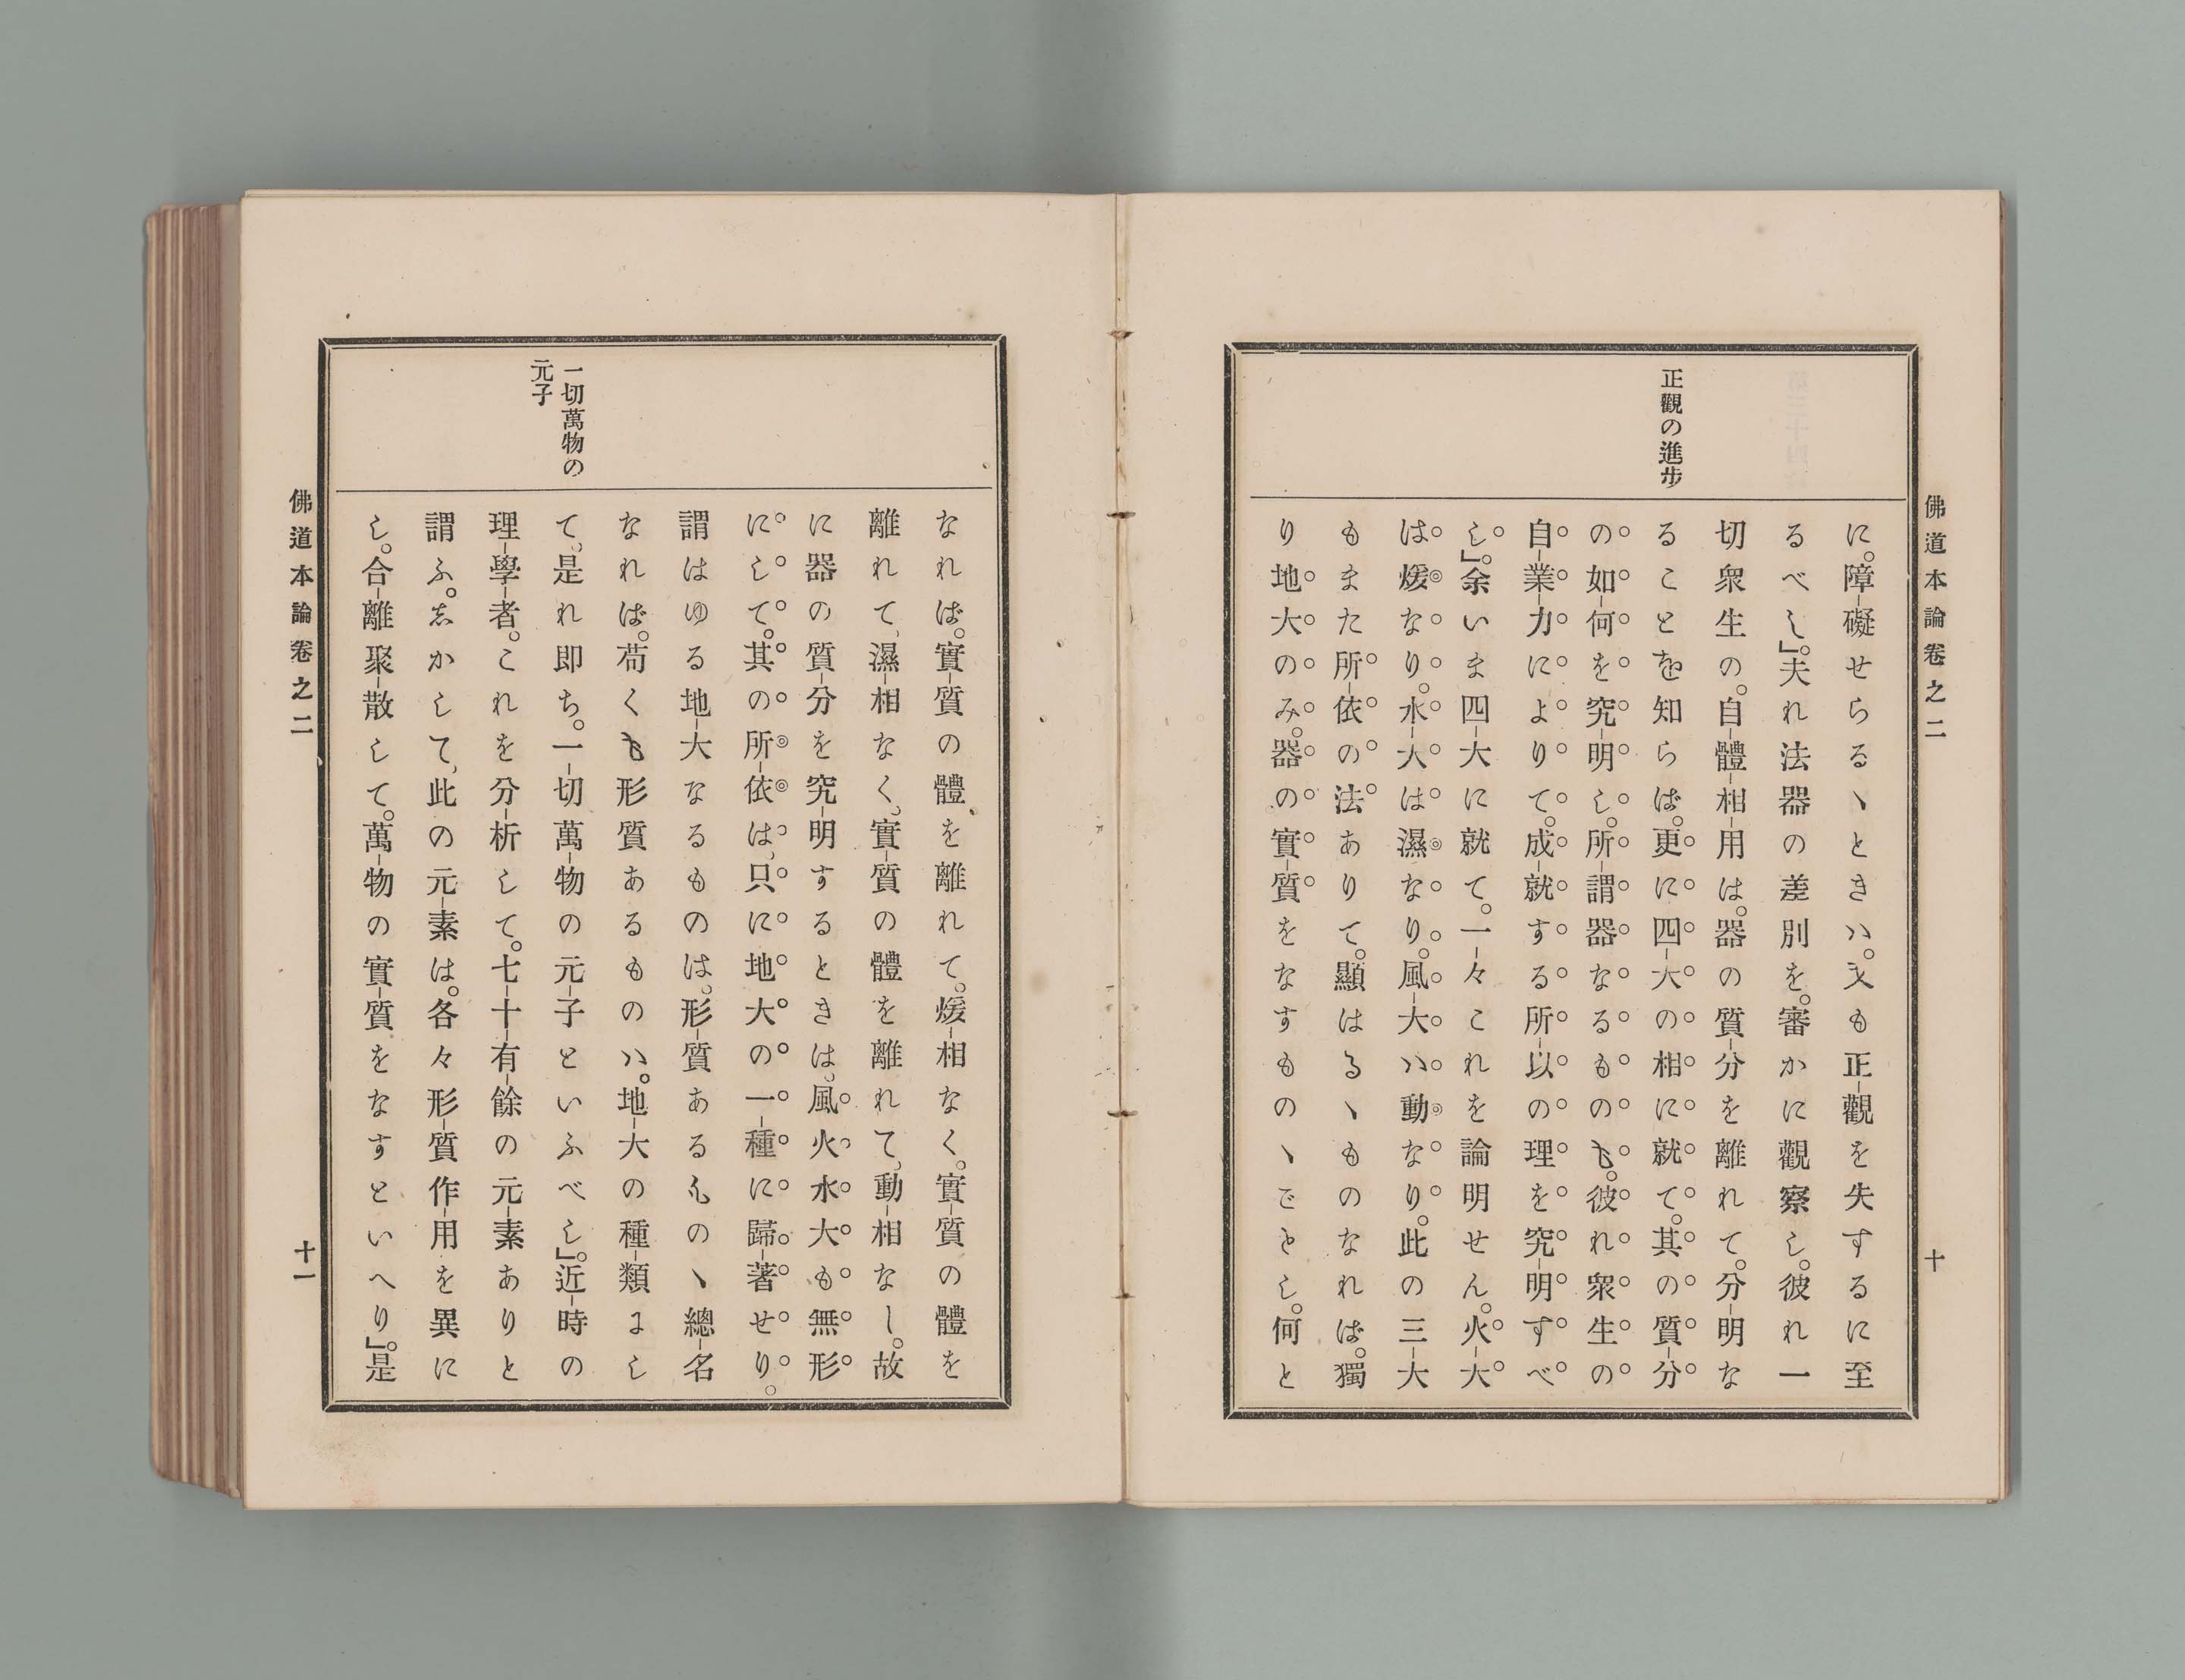 佛道本論卷之二
十
正觀の進步
に。障礙せらるヽときハ。又も正觀を失するに至
るべし。」夫れ法器の差別を。審かに觀察し。彼れ一
切衆生の。自體相用は。器の質分を離れて。分明な
ることを知らば。更に四大の相に就て。其の質分
の如何を究明し。所謂器なるものも。彼れ衆生の
自業力によりて。成就する所以の理を究明すべ
し。」余いま四大に就て。一々これを論明せん。火大
は煖なり。水大は濕なり。風大ハ動なり。此の三大
もまた所依の法ありて。顯はるヽものなれば。獨
り地大のみ。器の實質をなすものヽごとし。何と
一切萬物の
元子
なれば。實質の體を離れて。煖相なく。實質の體を
離れて、濕相なく。實質の體を離れて、動相なし。故
に器の質分を究明するときは。風火水大も無形
にして。其の所依は、只に地大の一種に歸著せり。
謂はゆる地大なるものは。形質あるものヽ總名
なれば。苟くも形質あるものハ。地大の種類にし
て。是れ即ち。一切萬物の元子といふべし。」近時の
理學者。これを分析して。七十有餘の元素ありと
謂ふ。志かして、此の元素は。各々形質作用を異に
し。合離聚散して。萬物の實質をなすといへり。」是
佛道本論卷之二
十一